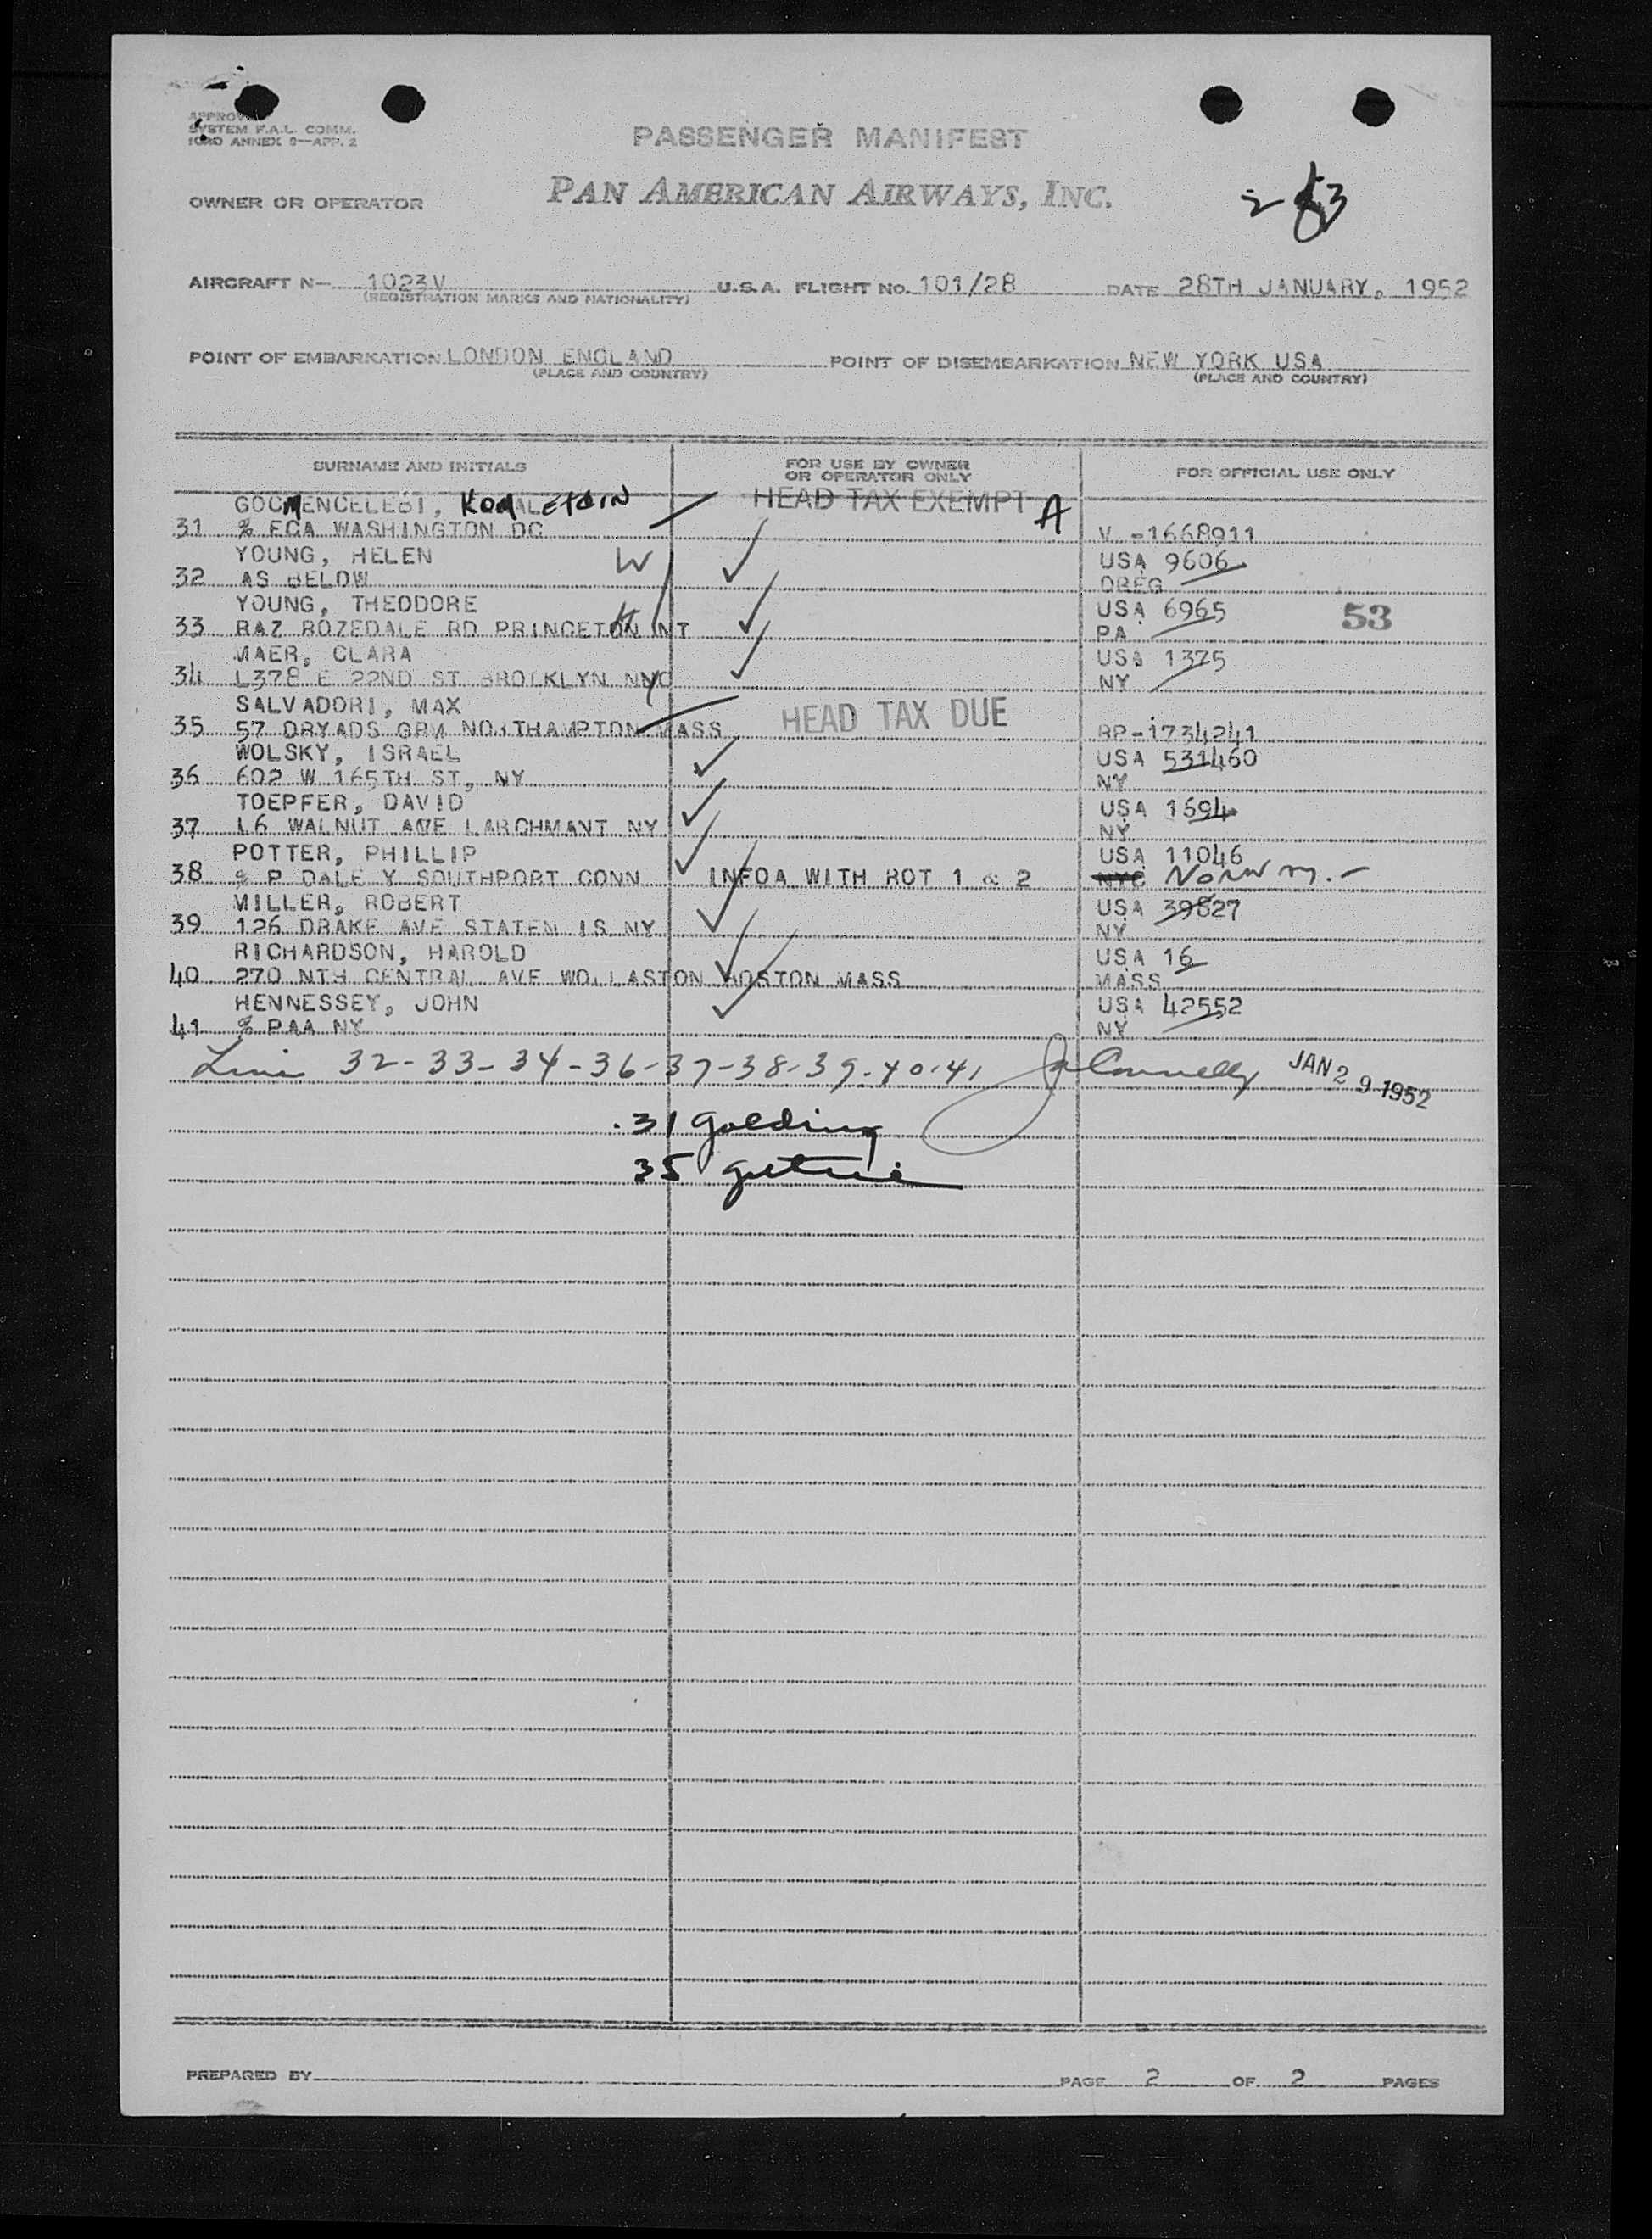 SYSTEM F.A.L. COMM.
ANNEX 9—APP. 2
PASSENGER MANIFEST
OWNER OR OPERATOR PAN AMERICAN AIRWAYS, INC.
AIRCRAFT N— 1023V U.S.A. FLIGHT NO. 101/28 DATE 28TH JANUARY, 1952
(REGISTRATION MARKS AND NATIONALITY)
POINT OF EMBARKATION LONDON ENGLAND POINT OF DISEMBARKATION NEW YORK USA
(PLACE AND COUNTRY) (PLACE AND COUNTRY)
SURNAME AND INITIALS FOR USE BY OWNER OR OPERATOR ONLY FOR OFFICIAL USE ONLY
GOCMENCELEBI, HEAD TAX EXEMPT A
31 % ECA WASHINGTON DC V -1668911
YOUNG, HELEN W USA 9606
32 AS BELOW OREG
YOUNG, THEODORE USA 6965 53
33 RAZ ROZEDALE RD PRINCETON NT PA
MAER, CLARA USA 1375
34 L378 E 22ND ST BROLKLYN NYC NY
SALVADORI, MAX HEAD TAX DUE
35 57 DRYADS GRM NORTHAMPTON MASS RP-1734241
WOLSKY, ISRAEL USA 531460
36 602 W 165TH ST, NY NY
TOEPFER, DAVID USA 1694
37 L6 WALNUT AVE LARCHMANT NY NY
POTTER, PHILLIP USA 11046
38 % P DALE Y SOUTHPORT CONN INFOA WITH ROT 1 & 2 NYC
MILLER, ROBERT USA 39827
39 126 DRAKE AVE STATEN IS NY NY
RICHARDSON, HAROLD USA 16
40 270 NTH CENTRAL AVE WOLLASTON BOSTON MASS MASS
HENNESSEY, JOHN USA 42552
41 % PAA NY NY
32-33-34-36-37-38-39-40-41 Connelly JAN 29 1952
31 Golding
35 Guthrie
PREPARED BY PAGE 2 OF 2 PAGES